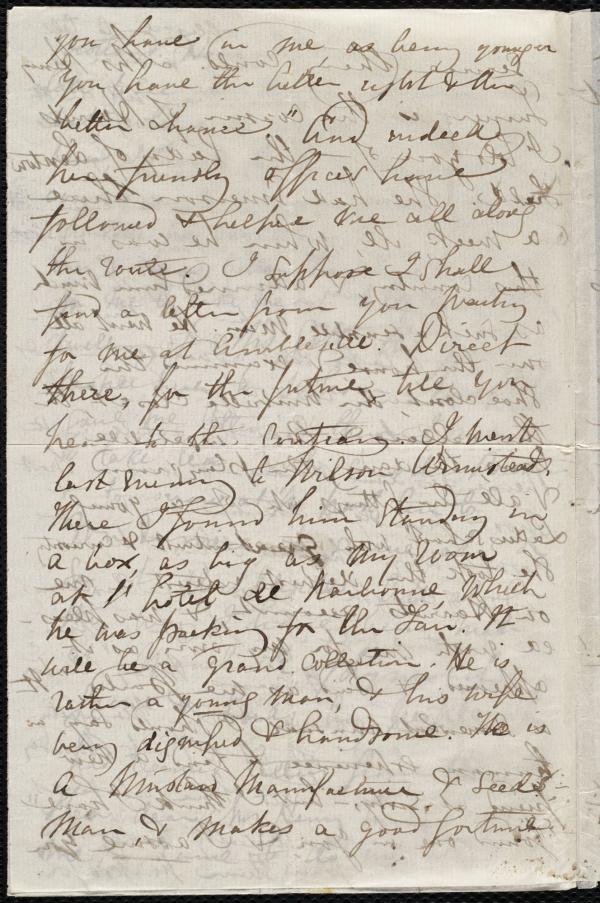 you have in me as being younger
you have the better right & the
better chance." And indeed
friendly offices have
followed & helped me all along
the route. I suppose I shall
find a letter from you waiting
for me at Ambleside. Direct
there, for the future, till you
hear to the contrary. I went
last evening to Wilson Armistead's.
There I found him standing in
a box, as big as my room
at l'hotel de Narbonne which
he was packing for the Fair. It
will be a grand collection. He is
rather a young man, & his wife
being dignified & handsome. He is
a Mustard Manufacturer & Seeds
Man, & makes a good fortune